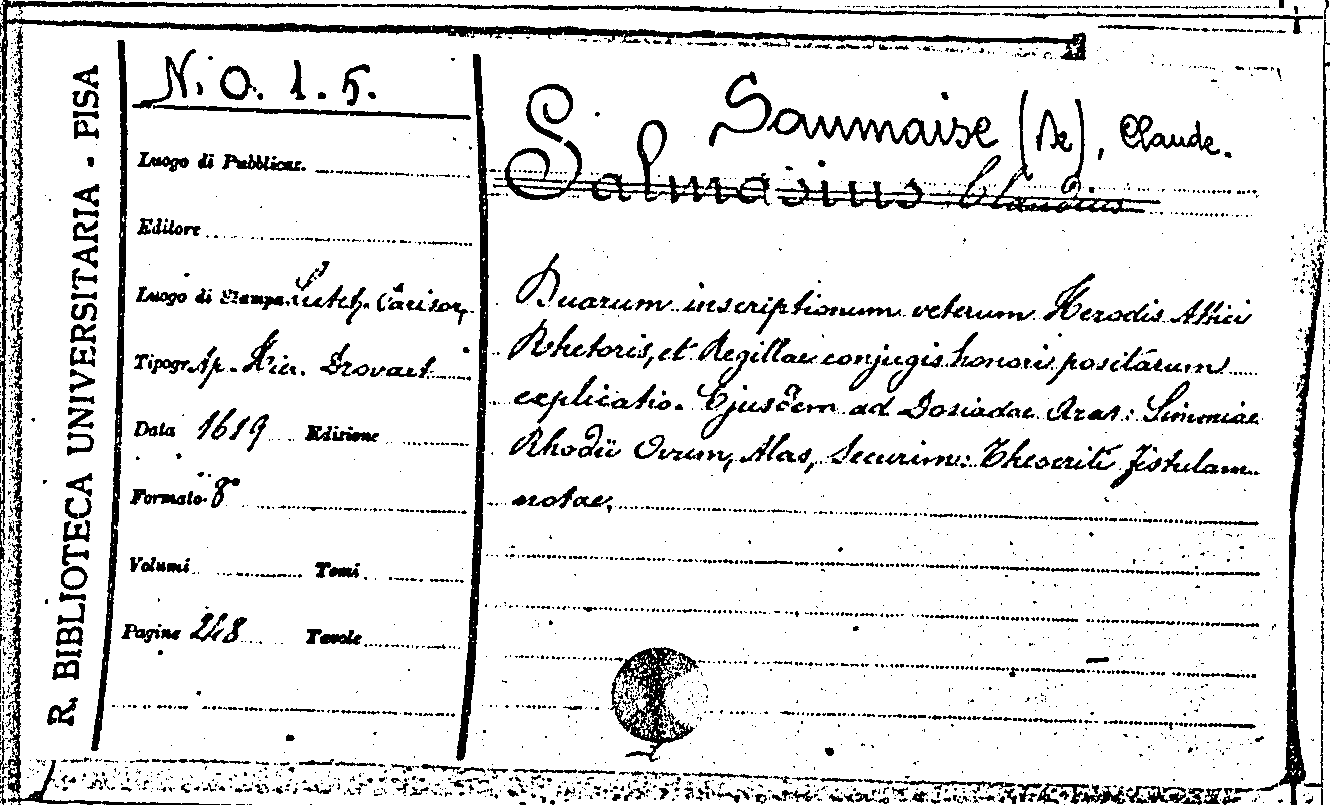 R. BIBLIOTECA UNIVERSITARIA - PISA
N. O. 1. 5.
Luogo di Pubblicaz.
Editore
Luogo di Stampa Lutet. Parisor,
Tipogr. Ap. Hier. Drovart
Data 1619 Edizione
Formato 8°
Volumi Tomi
Pagine 248 Tavole
Saumaise (De), Claude.
Salmasius Claudius
Duarum inscriptionum veterum Herodis Attici
Rhetoris, et Regillae conjugis honori positarum
explicatio. Ejusdem ad Dosiadae Aras: Simmiae
Rhodii Ovum, Alas, Securim: Theocriti fistulam
notae.